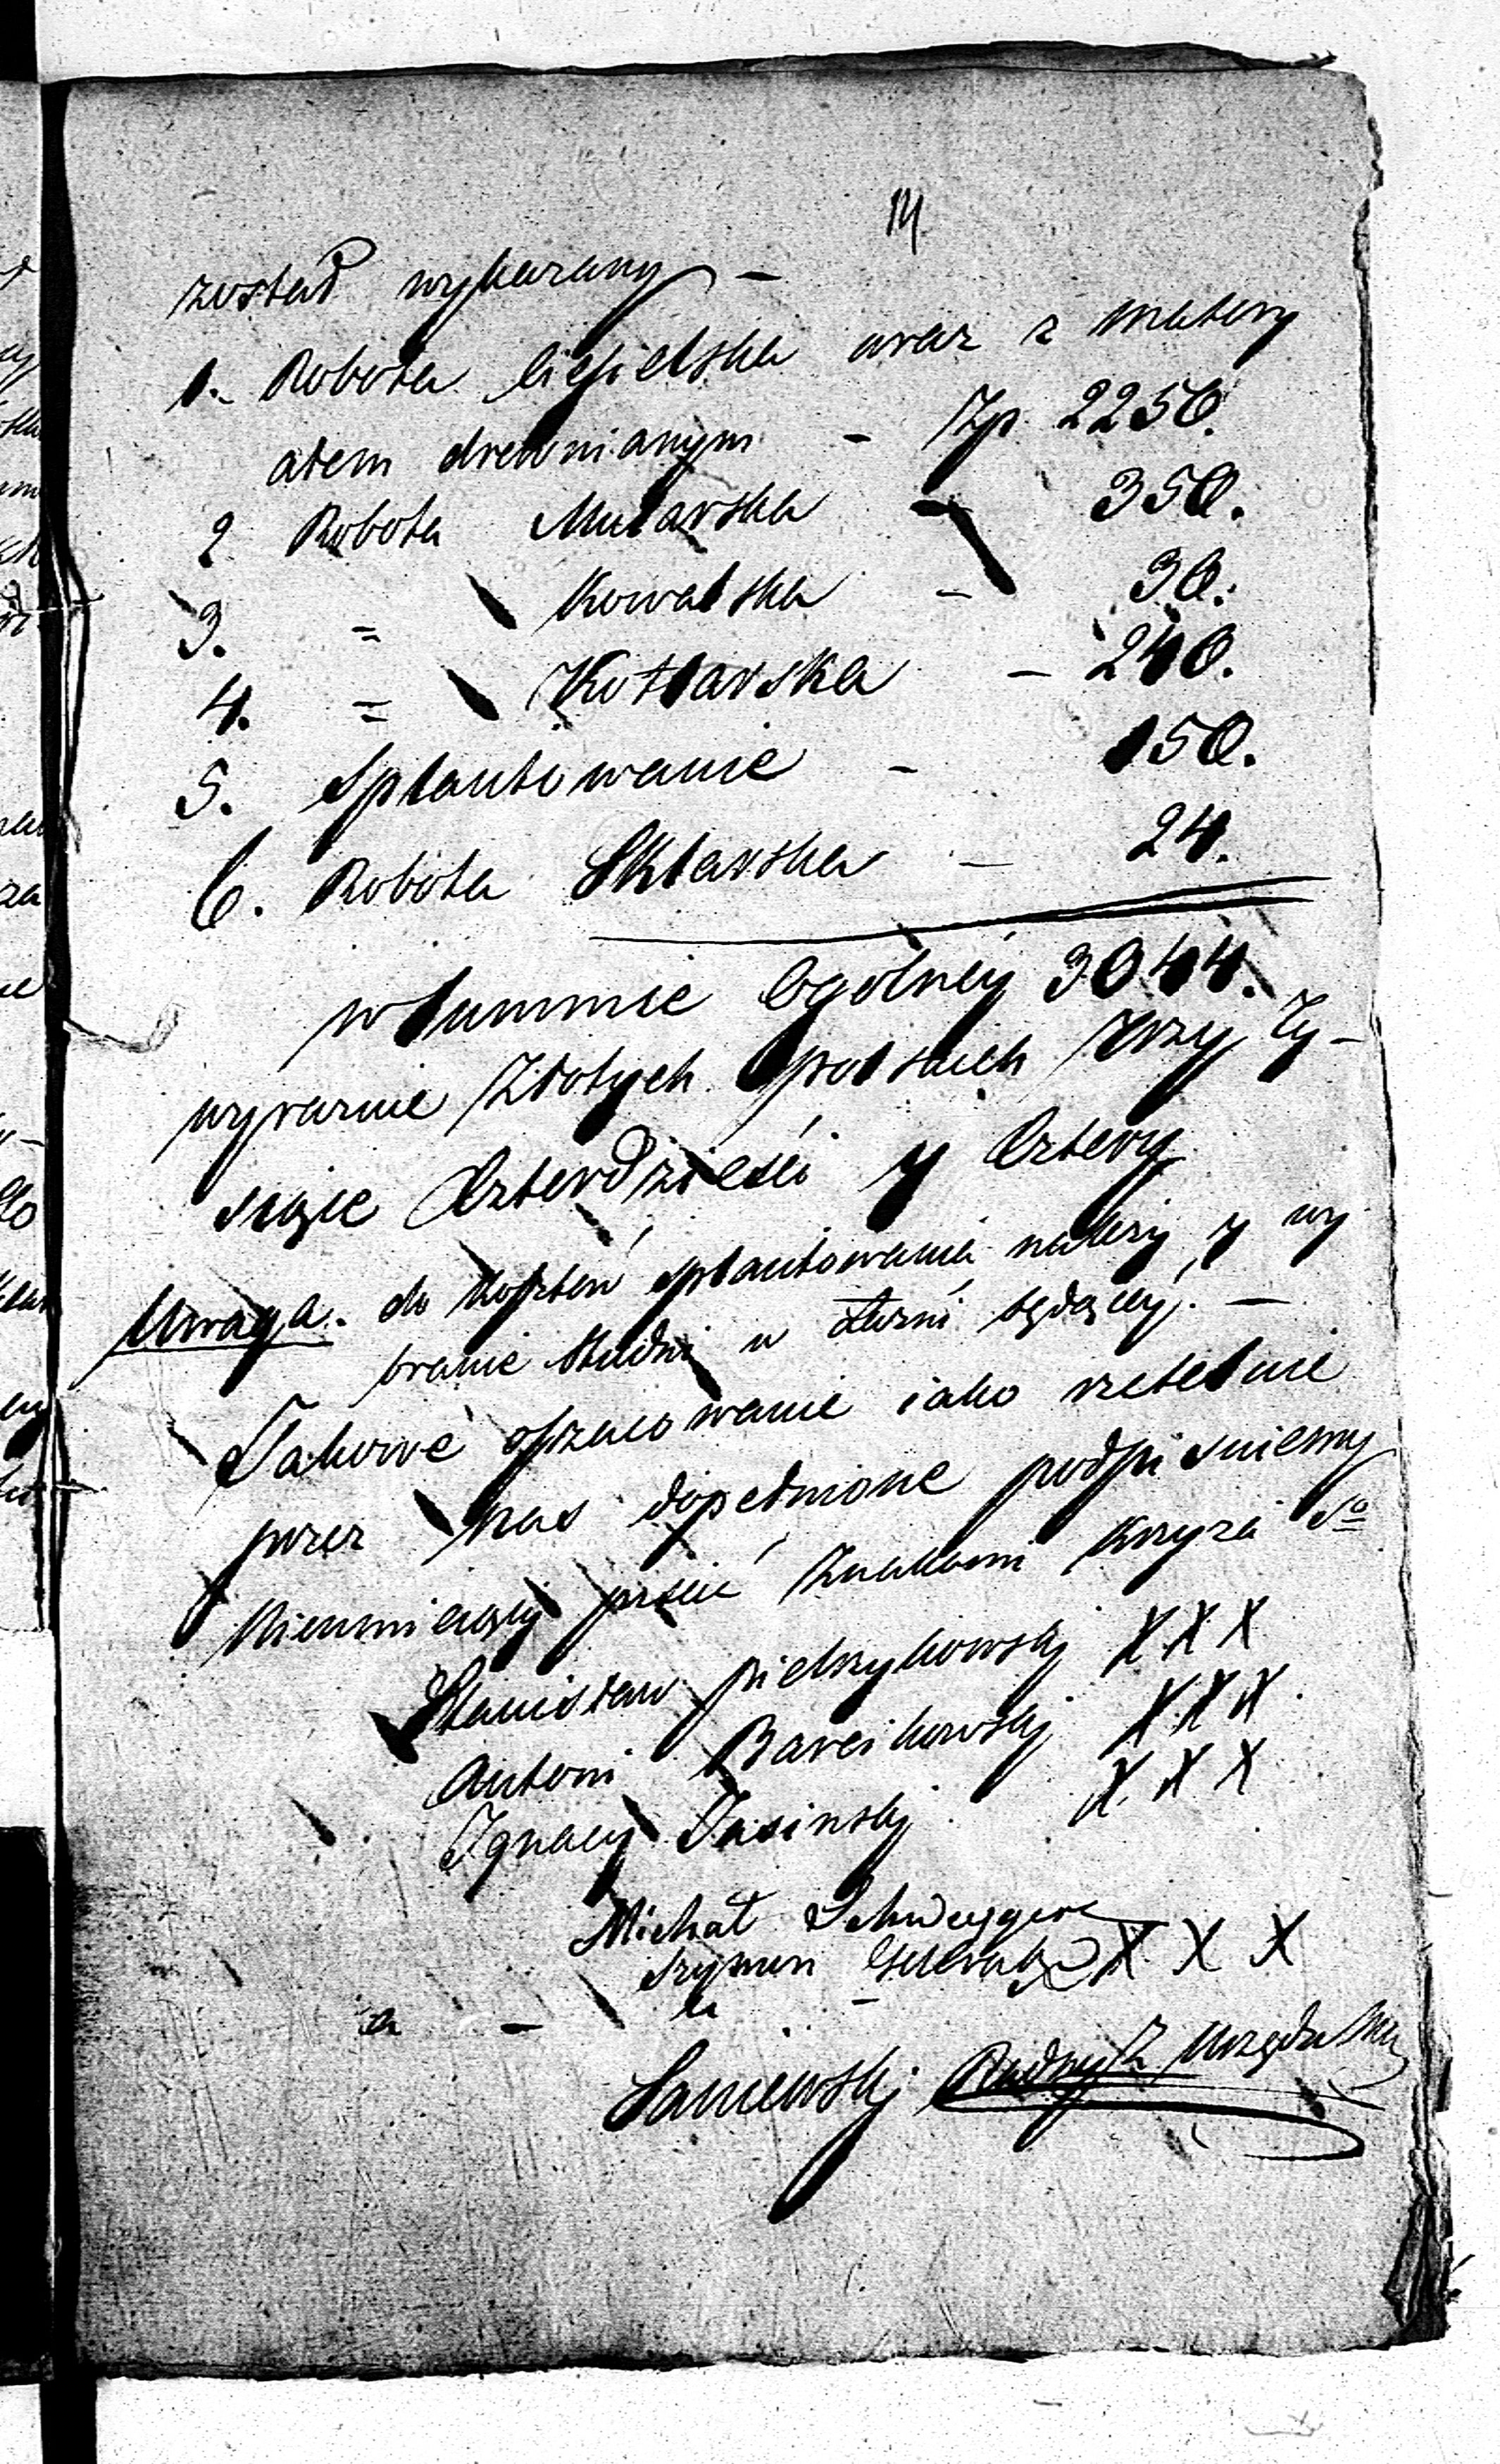 14
został wykazany –
1. Robota Ciesielska wraz z matery
ałem drewnianym – Zp. 2250.
2 Robota Mularska – 350.
3. = Kowalska – 30.
4. = Kotlarska – 240.
5. Splantowanie – 150.
6. Robota Sklarska – 24.
w Summie Ogólney 3044.
wyraznie Złotych polskich trzy Ty–
siące Czterdzieści y Cztery
Uwaga. do Kosztów splantowania należy y wy
branie Studni w będącey. –
Takowe oszacowanie iako rzetelnie
przez nas dopełnione podpisuiemy
Nieumieiący pisać Znakami Krzyża So
Stanisław pietrzykowsky X X X
Antoni Barcikowsky X X X
Ignacy Jasinsky X X X
Michał
Szymon X X X
Radny Z Urzędu